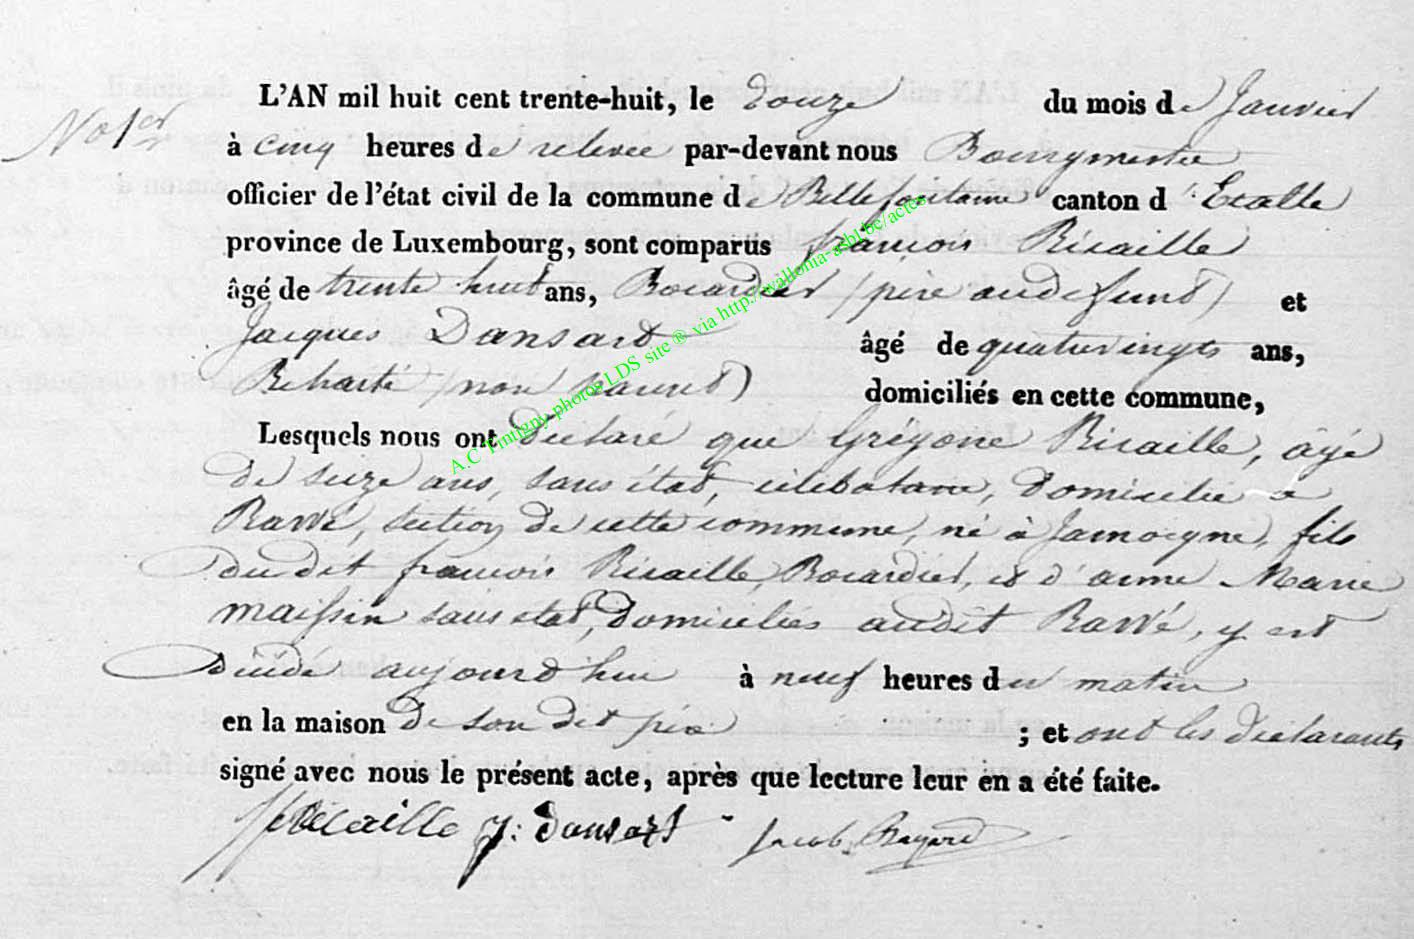 No 1er
L'AN mil huit cent trente-huit, le Douze du mois de Janvier
à cinq heures de relevée par-devant nous Bourgmestre
officier de l'état civil de la commune de Bellefontaine canton d'Etalle
province de Luxembourg, sont comparus françois Ricaille
âgé de trente huit ans, Bocardier (père au defunt) et
Jacques Dansart âgé de quatrevingts ans,
(non parent) domiciliés en cette commune,
Lesquels nous ont Déclaré que Grégoire Ricaille, âgé
de seize ans, sans état, célibataire, domicilié à
Rawé, section de cette commune, né à Jamoigne, fils
dudit françois Ricaille, Bocardier, et d'anne Marie
maissin sans état, domiciliés audit Rawé, y est
décédé aujourd'hui à neuf heures du matin
en la maison de son dit père ; et ont les déclarants
signé avec nous le présent acte, après que lecture leur en a été faite.
Ricaille J: Dansart Jacob
A.C Tintigny photos LDS site @ via http://wallonia-asbl.be/actes